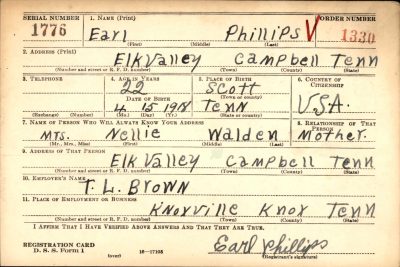 SERIAL NUMBER 1. NAME (Print) ORDER NUMBER
1776 Earl Phillips V 1330
(First) (Middle) (Last)
2. ADDRESS (Print)
Elk Valley Campbell Tenn
(Number and street or R. F. D. number) (Town) (County) (State)
3. TELEPHONE 4. AGE IN YEARS 5. PLACE OF BIRTH 6. COUNTRY OF CITIZENSHIP
22 Scott
DATE OF BIRTH (Town or county)
4 15 1918 Tenn U.S.A.
(Exchange) (Number) (Mo.) (Day) (Yr.) (State or country)
7. NAME OF PERSON WHO WILL ALWAYS KNOW YOUR ADDRESS 8. RELATIONSHIP OF THAT PERSON
Mrs. Nellie Walden Mother.
(Mr., Mrs., Miss) (First) (Middle) (Last)
9. ADDRESS OF THAT PERSON
Elk Valley Campbell Tenn
(Number and street or R. F. D. number) (Town) (County) (State)
10. EMPLOYER'S NAME
T. L. Brown
11. PLACE OF EMPLOYMENT OR BUSINESS
Knoxville Knox Tenn
(Number and street or R. F. D. number) (Town) (County) (State)
I AFFIRM THAT I HAVE VERIFIED ABOVE ANSWERS AND THAT THEY ARE TRUE.
Earl Phillips
REGISTRATION CARD
D. S. S. Form 1 (over) 16—17105 (Registrant's signature)